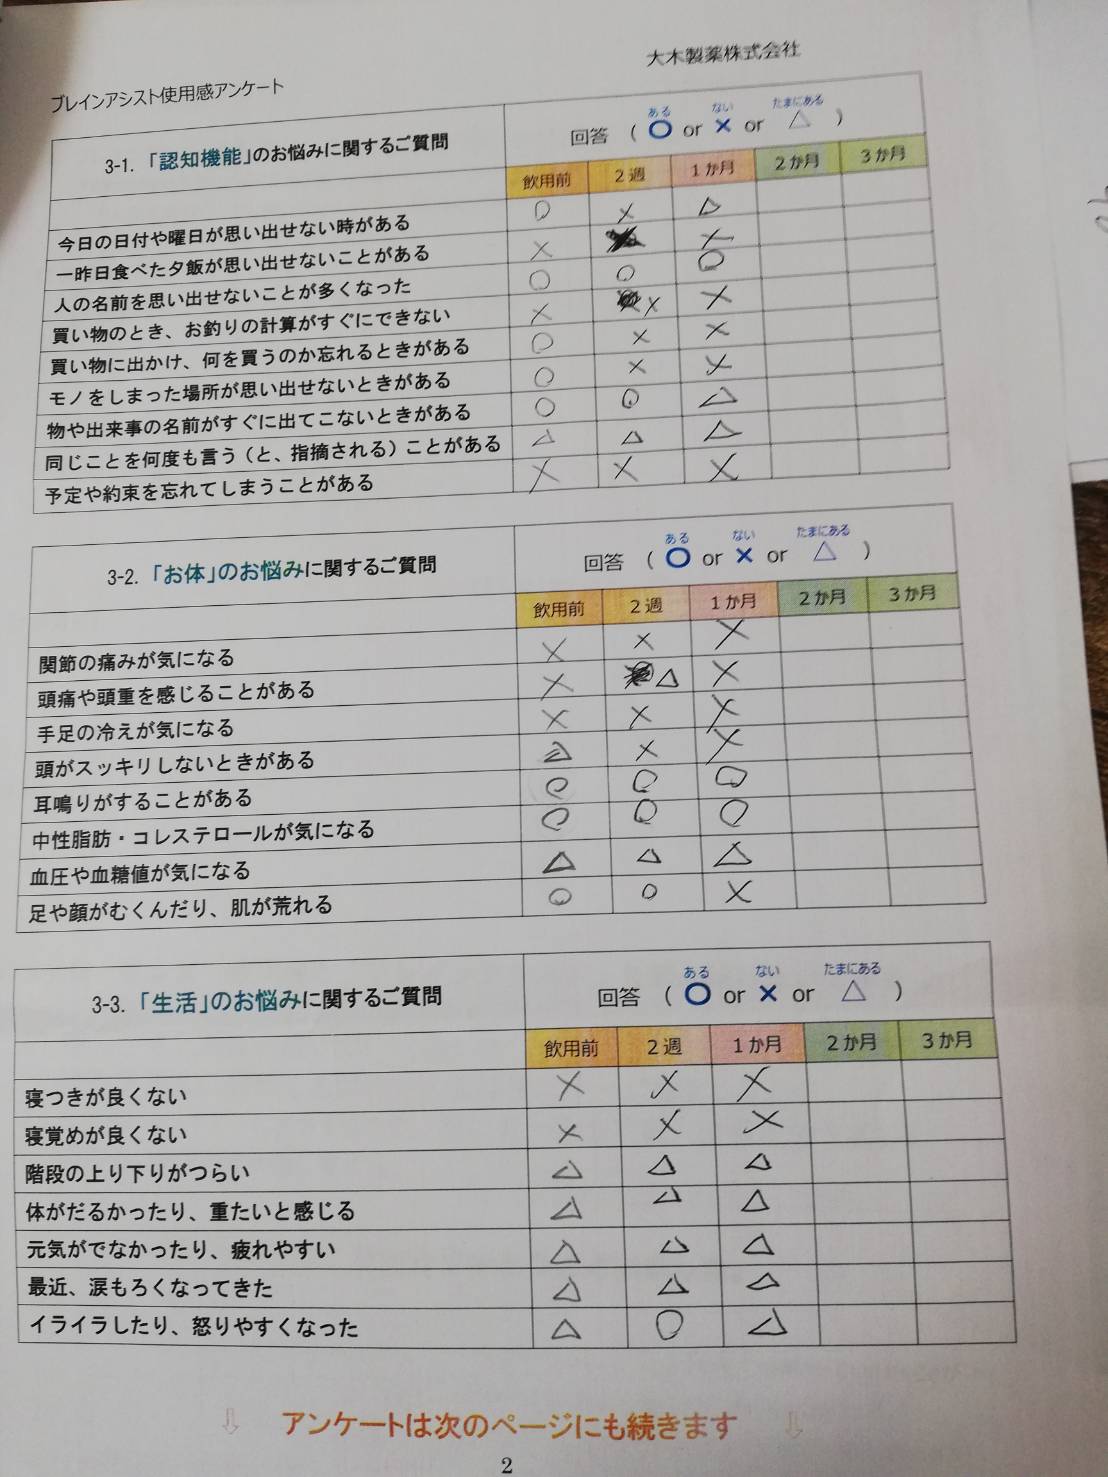 大木製薬株式会社
ブレインアシスト使用感アンケート
3-1.「認知機能」のお悩みに関するご質問
ある ない たまにある
回答 （ ○ or × or △ ）
飲用前 2週 1か月 2か月 3か月
今日の日付や曜日が思い出せない時がある ○ × △
一昨日食べた夕飯が思い出せないことがある × ×
人の名前を思い出せないことが多くなった ○ ○ ○
買い物のとき、お釣りの計算がすぐにできない × × ×
買い物に出かけ、何を買うのか忘れるときがある ○ × ×
モノをしまった場所が思い出せないときがある ○ × ×
物や出来事の名前がすぐに出てこないときがある ○ ○ △
同じことを何度も言う（と、指摘される）ことがある △ △ △
予定や約束を忘れてしまうことがある × × ×
3-2.「お体」のお悩みに関するご質問
ある ない たまにある
回答 （ ○ or × or △ ）
飲用前 2週 1か月 2か月 3か月
関節の痛みが気になる × × ×
頭痛や頭重を感じることがある × △ ×
手足の冷えが気になる × × ×
頭がスッキリしないときがある △ × ×
耳鳴りがすることがある ○ ○ ○
中性脂肪・コレステロールが気になる ○ ○ ○
血圧や血糖値が気になる △ △ △
足や顔がむくんだり、肌が荒れる ○ ○ ×
3-3.「生活」のお悩みに関するご質問
ある ない たまにある
回答 （ ○ or × or △ ）
飲用前 2週 1か月 2か月 3か月
寝つきが良くない × × ×
寝覚めが良くない × × ×
階段の上り下りがつらい △ △ △
体がだるかったり、重たいと感じる △ △ △
元気がでなかったり、疲れやすい △ △ △
最近、涙もろくなってきた △ △ △
イライラしたり、怒りやすくなった △ ○ △
⇩ アンケートは次のページにも続きます ⇩
2